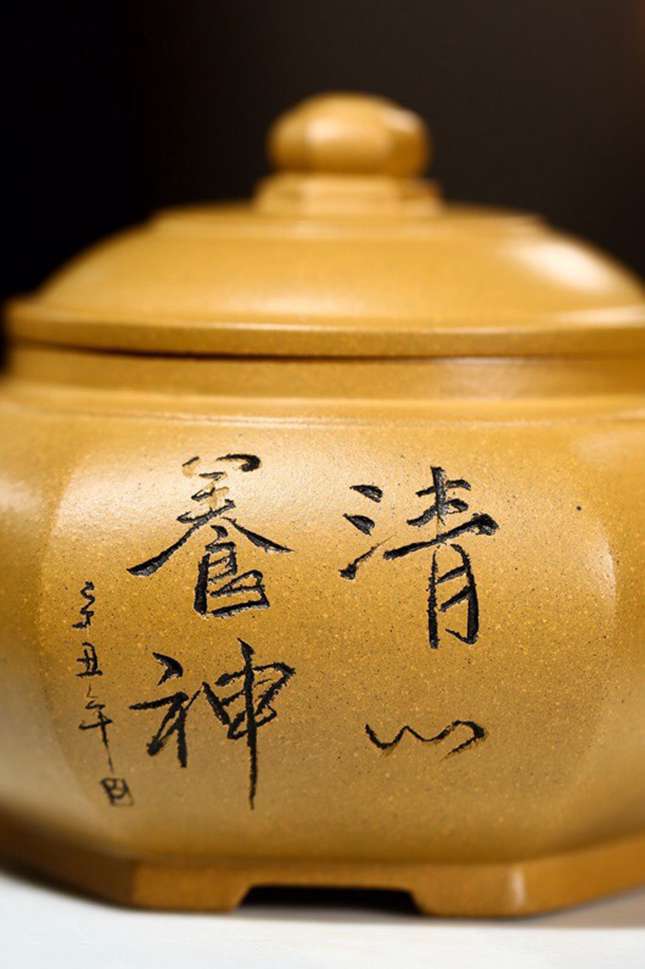 清心
養神
辛丑年